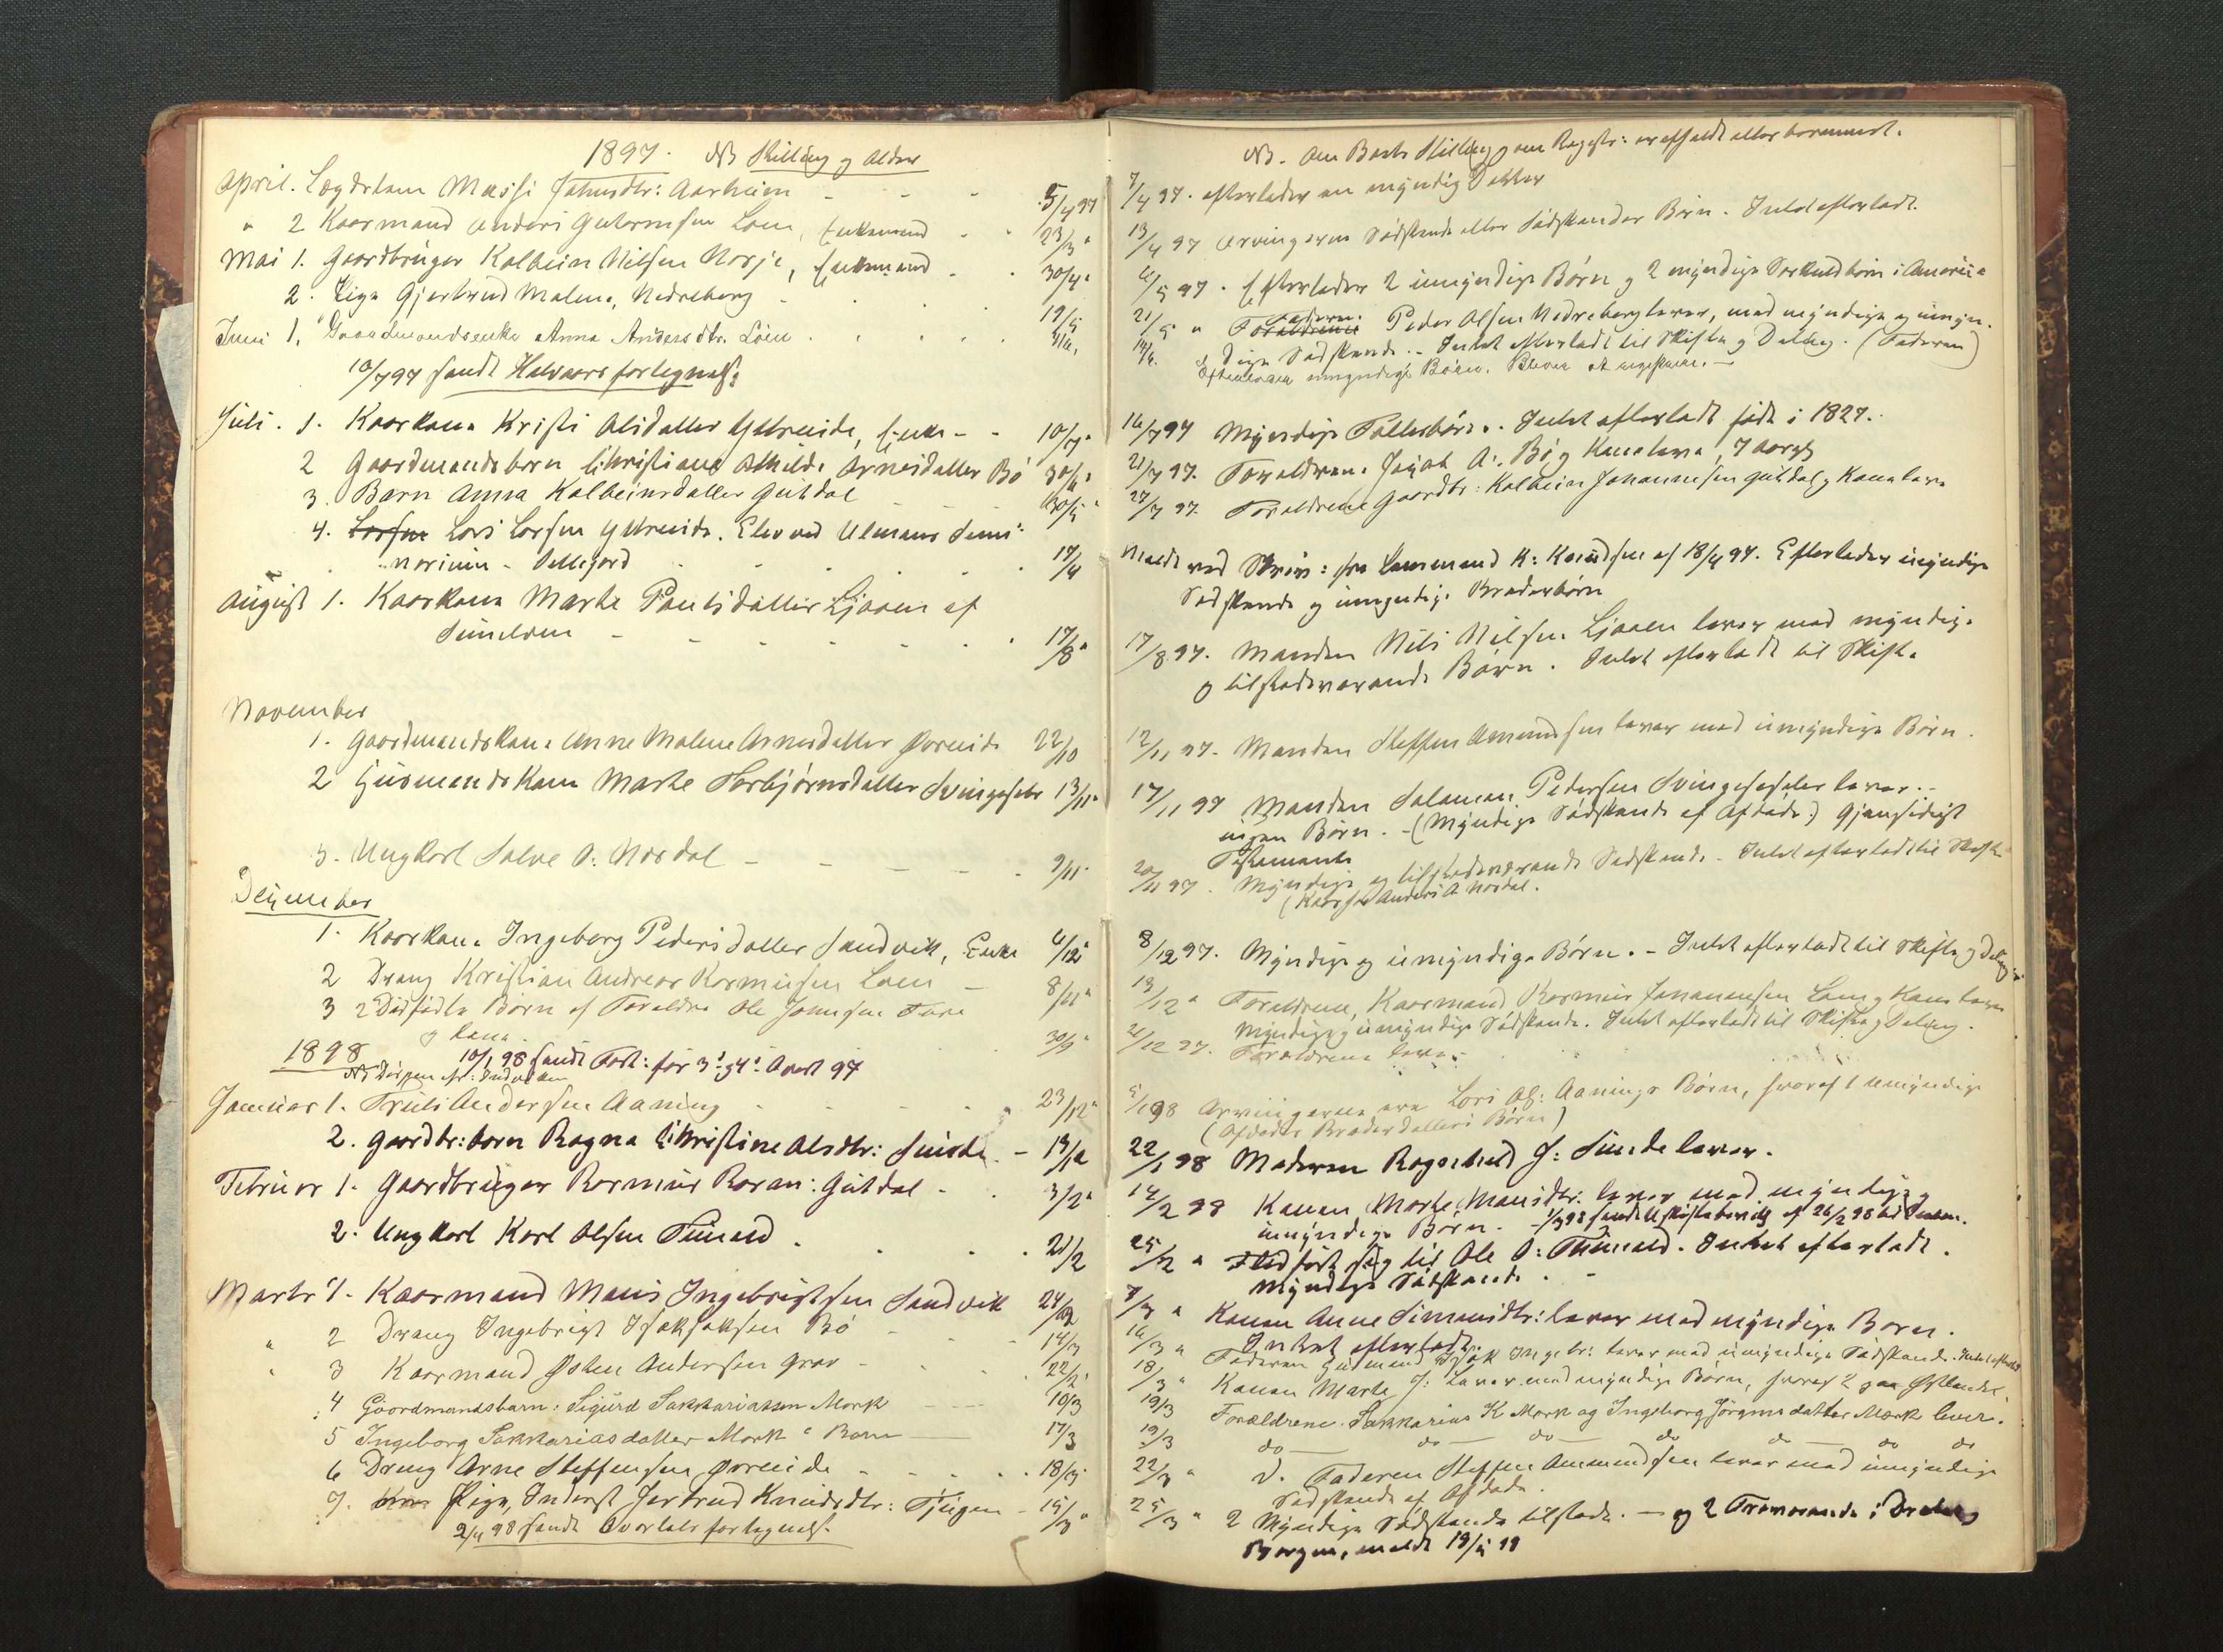 1897. NB Stilling og Alder
April. Lægdslem Massi Johnsdtr: Aarheim - - - 5/4 97
" 2 Kaarmand Anders Guttormsen Loen, Enkemand - - 23/3 "
Mai 1. Gaardbruger Kolbein Nilsen Norje, Enkemand - - 30/4 "
2. Pige Gjertrud Malene, Nedreberg - - 19/5
Juni 1. Gaardmandsenke Anna Andersdtr. Loen . . . .
10/7 97 sendt Halvaars fortegnelse
Juli. 1. Kaarkone Kristi Olsdatter Ytreeide, Enke - - 10/7 "
2 Gaardmandsbarn Christiane Mathilde Arnesdatter Bø 30/6 "
3. Barn Anna Kolbeinsdatter Guldal - 30/5 "
4. Lars Larsen Ytreeide. Elev ved Ulmans Semi-
narium - Seljord - - - 17/4
August 1. Kaarkone Marte Paulsdatter Ljaaen af
Sunelven - - - - - 17/8 "
November
1. Gaardmandskone Anne Malene Arnesdatter Øvreeide 22/10
2 Husmandskone Marte Thorbjørnsdatter Svingesæter 13/11 "
3. Ungkarl Salve O: Nordal - - - - 9/11 "
December
1. Kaarkone Ingeborg Pedersdatter Sandvik, Enke 6/12 "
2 Dreng Kristian Andreas Rasmusen Loen - 8/11 "
3 2 Dødfødte Børn af Forældre Ole Johnsen
og Kone. - - - 30/9 "
1898 10/1 98 sendt Fort: for 3' og 4' Qvart 97
Januar 1. Truls Andersen Aaning - - - 23/12 "
2. Gaardbr: barn Ragna Christine Olsdtr: Sunde - 13/12
Februar 1. Gaardbruger Rasmus Rasm: Guldal - - 3/2 "
2. Ungkarl Karl Olsen Tunold - - - 21/2
Marts 1. Kaarmand Mons Ingebrigtsen Sandvik 24/2
" 2 Dreng Ingebrigt Isaksaksen Bø - - - 14/3
" 3 Kaarmand Østen Andersen Grov - - - 22/2 "
" 4 Gaardmandsbarn: Sigurd Sakkariassen Mork — — 10/3
5 Ingeborg Sakkariasdatter Mork " Barn — 17/3
6 Dreng Arne Steffensen Øvreeide - - - - 18/3 "
7. Pige, Inderst Jertrud Knudsdtr: Tjugen - 15/3 "
2/4 98 sendt Qvartals fortegnelse.
NB. Om Boets Stilling og om Registr: er afholdt eller berammet.
7/4 97. efterlader en myndig Datter
13/4 97 Arvingerne Sødskende eller Sødskendes Børn. Intet efterladt.
4/5 97. Efterlader 2 umyndige Børn og 2 myndige Særkuldbørn i Amerika
21/5 " Faderen Peder Olsen Nedreberg lever, med myndige og umyn-
dige Sødskende. - Intet efterladt til Skifte og Deling. (Faderen)
Efterlader umyndige Børn. Boven at registrere. —
16/7 97 Myndige Fællesbørn. Intet efterladt født i 1827.
21/7 97. Forældrene Jakob A: Bø og Kone leve, 7 aar gl
27/7 97. Forældrene Gaardbr: Kolbein Johannesen Guldal og Kone leve
Meldt ved Skriv: fra Lensmand K: Knudsen af 18/4 97. Efterlader umyndige
Sødskende og umyndige Broderbørn
17/8 97. Manden Nils Nilsen Ljaaen lever med myndige
og tilstedeværende Børn. Intet efterladt til Skifte
12/11 97. Manden Steffen Amundsen lever med umyndige Børn.
17/11 97 Manden Salamon Pedersen Svingesæter lever. -
ingen Børn. - (Myndige Sødskende af Afdøde.) Gjensidigt
Testamente
20/11 97. Myndige og tilstedeværende Sødskende - Intet efterladt til Skifte
(Kaarfar Anders A Nordal.
8/12 97. Myndige og umyndige Børn. - Intet efterladt til Skifte og Deling
13/12 " Forældrene, Kaarmand Rasmus Johannesen Loen og Kone lever
Myndige og umyndige Sødskende. Intet efterladt til Skifte og Deling.
21/12 97. Forældrene leve -
5/1 98 Arvingerne ere Lars Ab: Aanings Børn, hvoraf 1 umyndige
(Afdødes Broderdatters Børn)
22/1 98 Moderen Ragnhild J: Sunde lever.
14/2 98 Konen Marte Monsdtr: lever med myndige og
umyndige Børn. - 1/3 98 sendt Uskiftebevilg af 26/2 98 til Enken.
25/2 " Indført sig til Ole O: Tunold. Intet efterladt.
myndige Sødskende. -
8/3 " Konen Anne Simonsdtr: lever med myndige Børn.
Intet efterladt.
16/3 " Faderen Husmand Isak Ingebr: lever med umyndige Sødskende. Intet efterladt
18/3 " Konen Marte J: lever med myndige Børn, hvoraf 2 paa Østlandet.
19/3 Forældrene Sakkarias K Mork og Ingeborg Jørgensdatter Mork lever.
19/3 do — do — do — do do — do do
22/3 " D. Faderen Steffen Ammundsen lever med umyndige
Sødskende af Afdøde.
25/3 " 2 Myndige Sødskende tilstede. — og 2 Fraværende i
Bergen, meldt